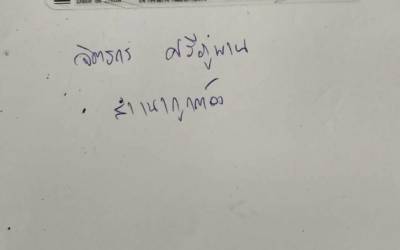 จิตรกร ศรีภู่พาน
สำเนาถูกต้อง